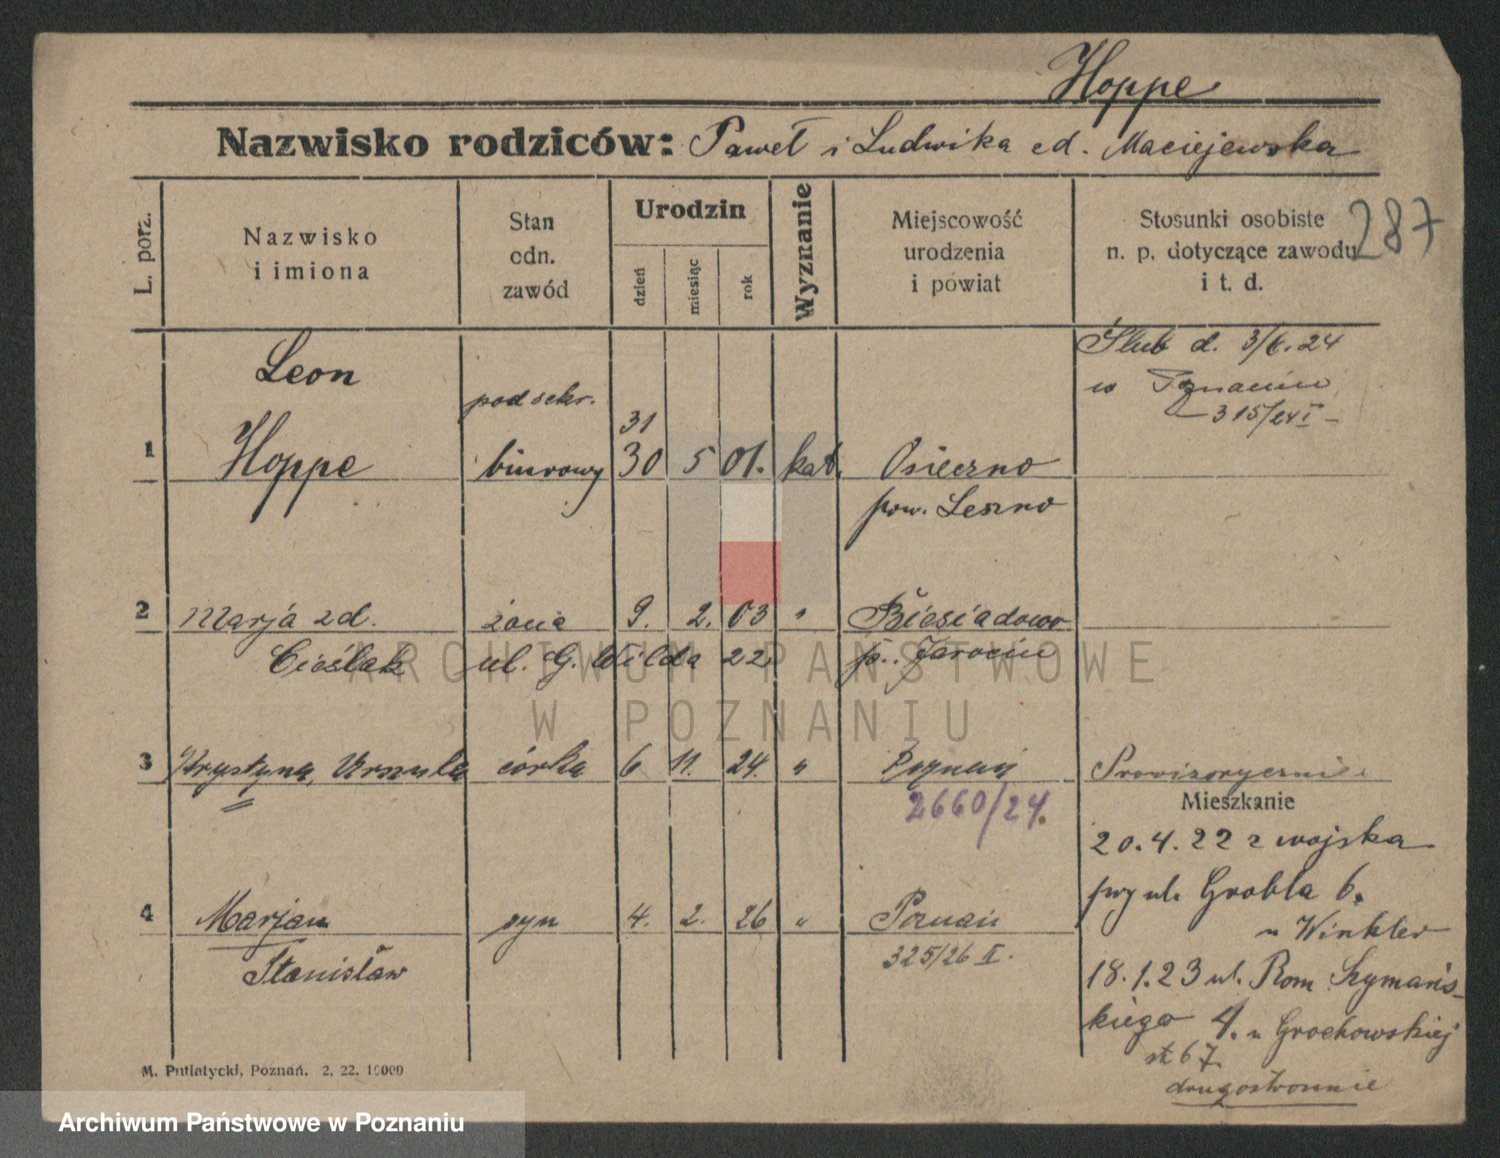 Hoppe
Nazwisko rodziców: Paweł i Ludwika zd. Maciejewska
287
L. porz.
Nazwisko i imiona
Stan odn. zawód
Urodzin
dzień
miesiąc
rok
Wyznanie
Miejscowość urodzenia i powiat
Stosunki osobiste n. p. dotyczące zawodu i t. d.
Ślub d. 3/6.24
w Poznaniu
315/24 I
Leon
podsekr.
31
1 Hoppe biurowy 30 5 01. kat. Osieczno
pow. Leszno
2 Marja zd. żona 9. 2. 03 " Biesiadowo
Cieślak ul. G. Wilda 22. p. Jarocin
3 Krystyna, Urszula córka 6 11. 24. " Poznań Prowizorycznie
2660/24.
Mieszkanie
20.4.22 z wojska
przy ul. Grobla 6.
u Winkler
4 Marjan syn 4. 2. 26 " Poznań
Stanisław 325/26 II.
18.1.23 ul. Rom. Szymańs-
kiego 4. u Grochowskiej
st. 67
drugostronnie
M. Putiatycki, Poznań. 2. 22. 10000
ARCHIWUM PAŃSTWOWE
W POZNANIU
Archiwum Państwowe w Poznaniu